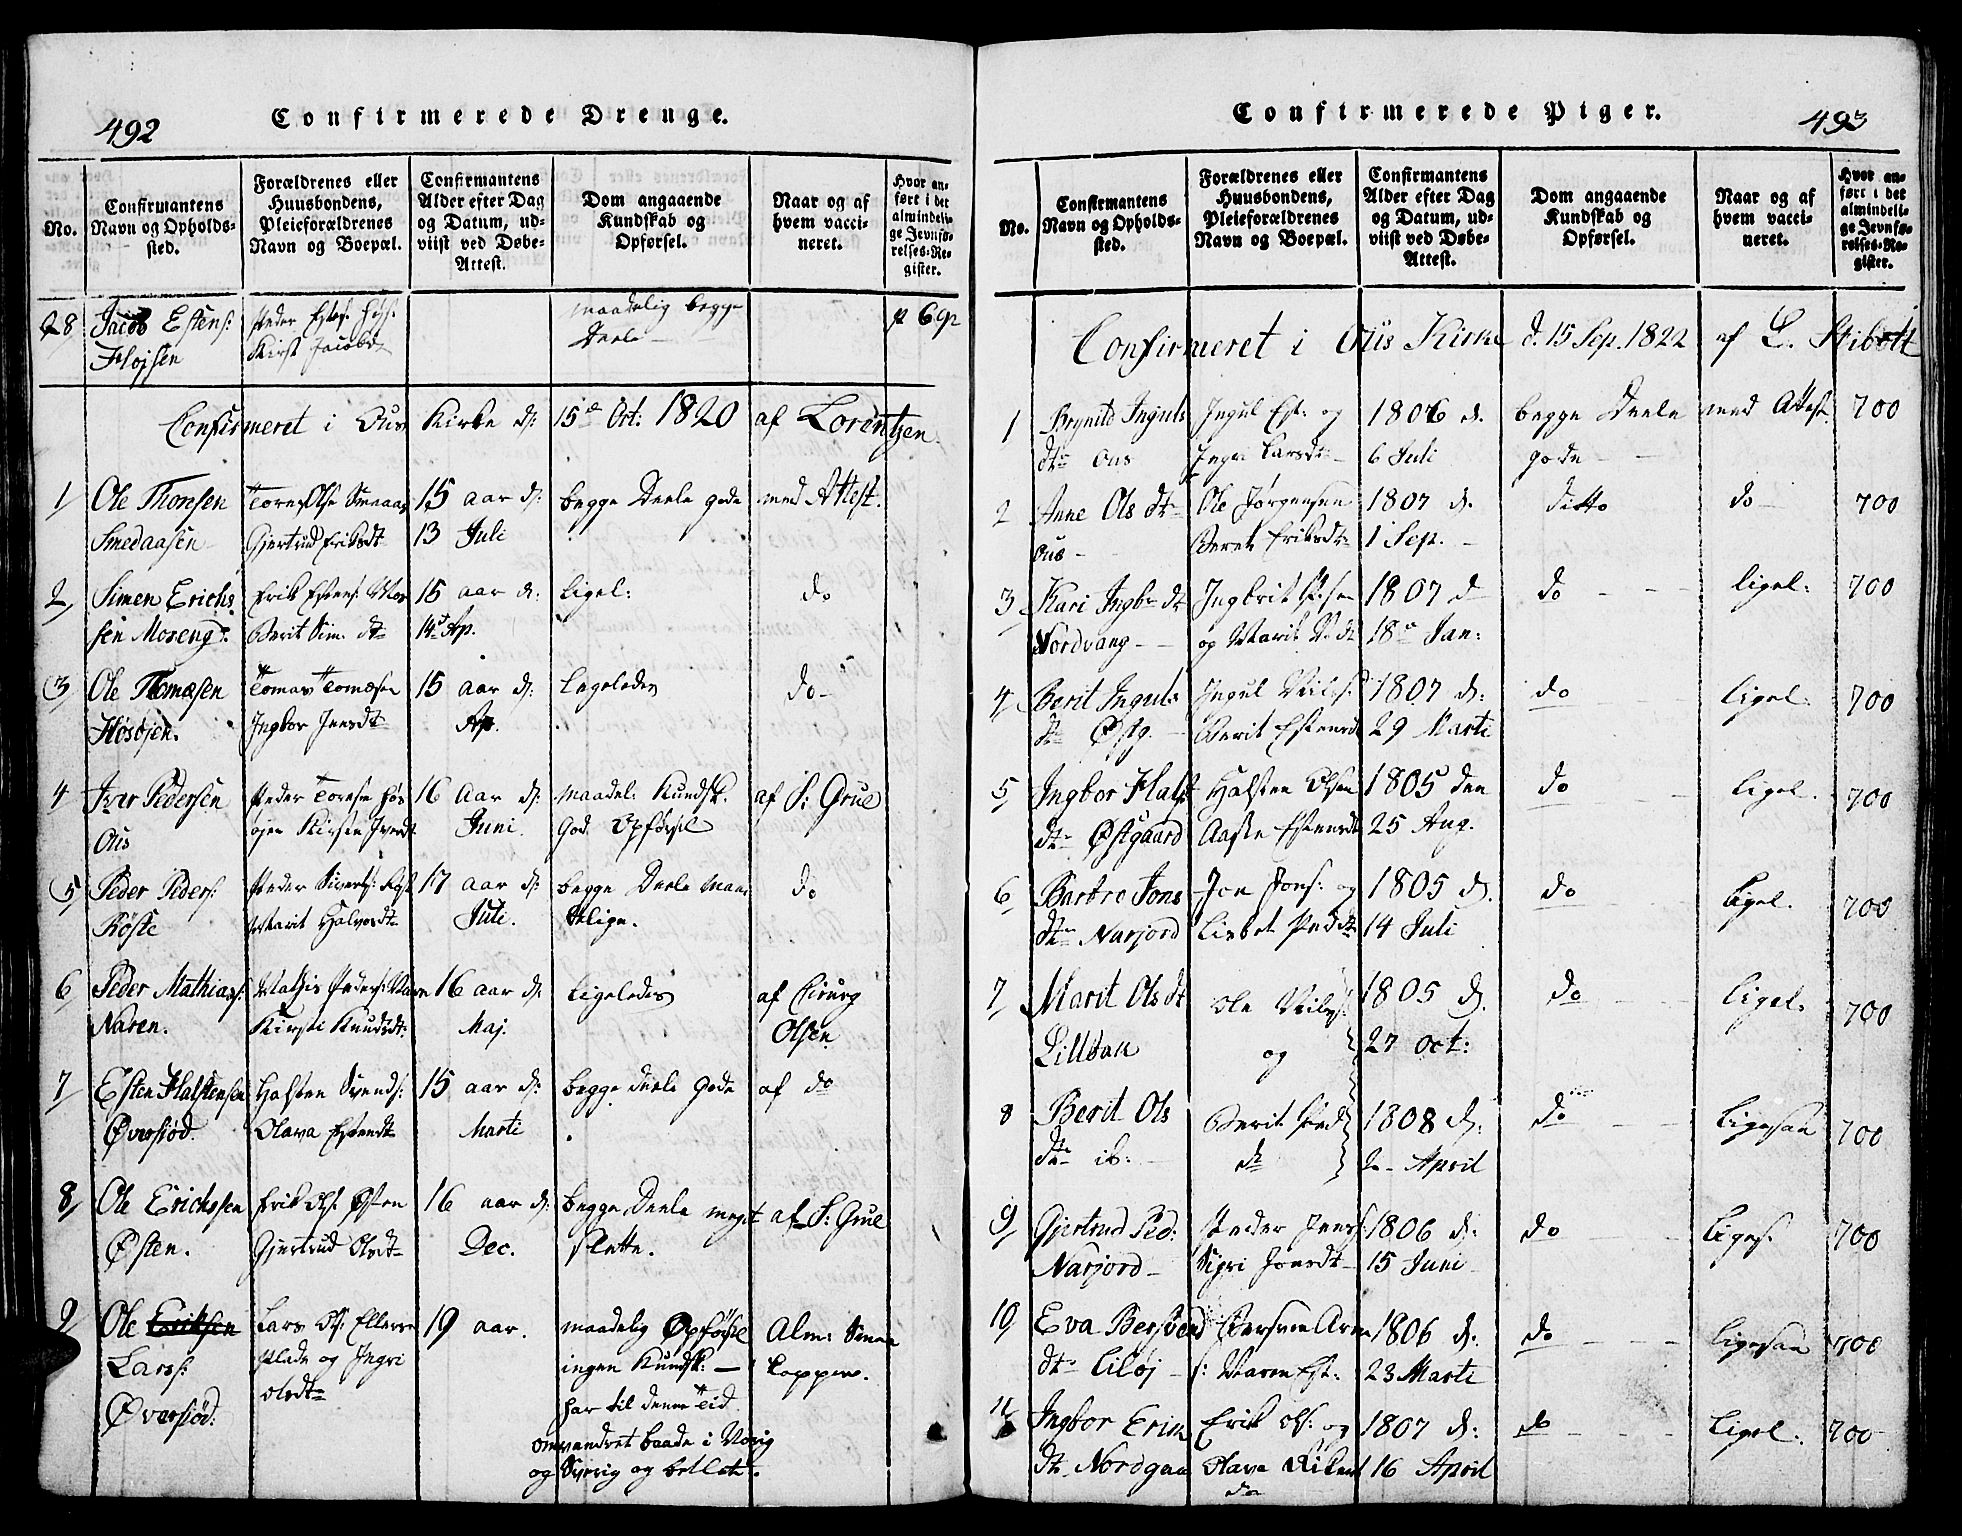 492
Confirmerede Drenge.
No.
Confirmantens
Navn og Opholds-
sted.
Forældrenes eller
Huusbondens,
Pleieforældrenes
Navn og Boepæl.
Confirmantens
Alder efter Dag
og Datum, ud-
viist ved Døbe-
Attest.
Dom angaaende
Kundskab og
Opførsel.
Naar og af
hvem vacci-
neret.
Hvor an-
ført i det
almindeli-
ge Jevnfø-
relses-Re-
gister.
28 Jacob Estens:
Flojsen
Kirst Jacobdt
maadelig begge
Deele
p 692
Confirmeret i Ous Kirke d: 15de Oct: 1820 af Lorentzen
1 Ole Thomsen
Smedaasen
Gjertrud Eriksdt
15 aar d:
13 Juli
begge Deele gode
med Attest.
2 Simen Erichs
sen Moseng
Erik Estens: Mos
Berit Sim. dt
15 aar d:
14de Ap.
ligel:
do
3 Ole Thomæsen
Høsøjen.
Tomas Tomæsen
Ingbor Jensdt
15 aar d:
Ap.
ligeledes
do
4 Iver Pedersen
Ous
Peder Toresen Høs
øjen Kirsten Iversdt
16 Aar d:
Juni.
maadel: Kundsk.
God Opførsel
af S: Grue
5 Peder Peders:
Røste
Peder Siverts: Røst
Marit Halvorsdt
17 aar d:
Juli.
begge Deele maa
delige.
do
6 Peder Mathias:
Naren.
Mathis Peders: Naren
Kirsti Knudsdt:
16 aar d:
Maj.
ligeledes
af Cirurg
Olsen
7 Esten Halstensen
Øversiød.
Halsten Svends:
Olava Estendt
15 aar d:
Marti
begge deele gode
af do
8 Ole Erichssen
Østen.
Erik Ols: Østen
Gjertrud Olsdt
16 aar d:
Dec.
begge Deele meget
slette.
af S: Grue
9 Ole Eriksen
Lars:
Øversiød:
Lars Ols: Ellever
plads og Ingri
Olsdt
19 aar.
maadelig Opførsel
ingen Kundsk: —
har til denne Tid
omvandret baade i Norig
og Sverig og betlet.
Alm: Smaa
kopper.
Confirmerede Piger.
493
No.
Confirmantens
Navn og Opholds-
sted.
Forældrenes eller
Huusbondens,
Pleieforældrenes
Navn og Boepæl.
Confirmantens
Alder efter Dag
og Datum, ud-
viist ved Døbe-
Attest.
Dom angaaende
Kundskab og
Opførsel.
Naar og af
hvem vacci-
neret.
Hvor an-
ført i det
almindeli-
ge Jevnfø-
relses-Re-
gister.
Confirmeret i Ous Kirke d. 15 Sep. 1822 af L. Stibolt
1 Brynild Inguls
dtr Ous
Ingul Est: og
Ingri Larsdt
1806 d.
6 Juli
begge Deele
gode
med Attest
700
2 Anne Ols dtr
Ous
Ole Jørgensen
Berit Eriksdt
1807 d.
1 Sep.
ditto
do
700
3 Kari Ingbr dt
Nordvang
og Marit dt
1807 d
18de Jan:
do
ligel:
700
4 Berit Inguls
dtr Østg.
Ingul Nils:
Berit Estensdt
1807 d:
29 Marti
do
ligel.
700
5 Ingbor Halst
dtr Østgaard
Halsten Olsen
Aaste Estensdt
1805 den
25 Aug.
do
ligel.
700
6 Barbro Jons
dtr Narjord
Jon Jons: og
Lisbet Ped dt
1805 d.
14 Juli
do
ligel.
700
7 Marit Ols dt
Lilløen
Ole Nils:
og
1805 d.
27 oct:
do
ligel.
700
8 Berit Ols
dtr ib:
Berit Ped
dt
1808 d:
2 April
do
ligesaa
700
9 Gjertrud Ped:
Narjord
Peder Jens:
Sigri Jonsdt
1806 d:
15 Juni
do
liges.
700
10 Eva Bersvend
dtr Liløj
Maren Est:
1806 d:
23 Marti
do
ligesaa
700
11 Ingbor Erik
dt Nordgaa
Erik Ols: og
Olava
1807 d:
16 April
do
ligel.
700